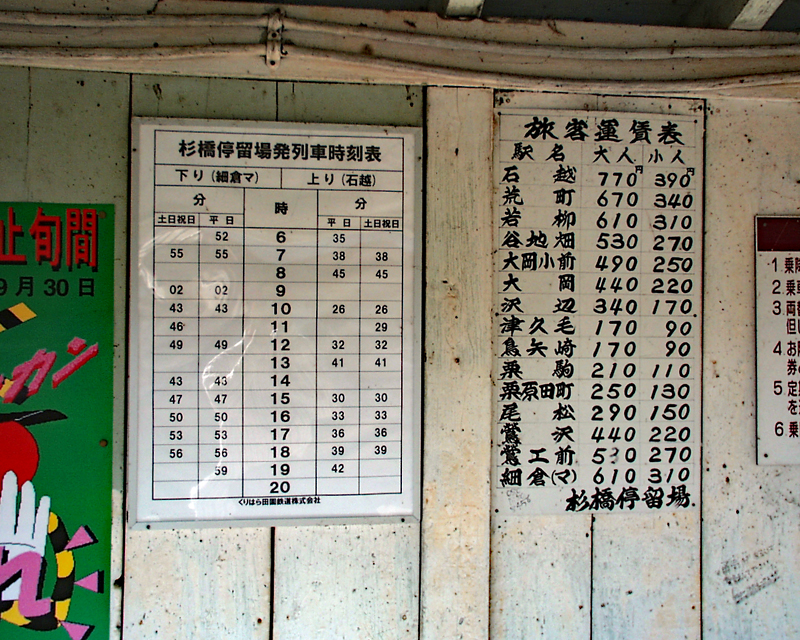 止旬間
9月30日
カン
杉橋停留場発列車時刻表
下り(細倉マ) 上り(石越)
分 時 分
土日祝日 平日 平日 土日祝日
52 6 35
55 55 7 38 38
8 45 45
02 02 9
43 43 10 26 26
46 11 29
49 49 12 32 32
13 41 41
43 43 14
47 47 15 30 30
50 50 16 33 33
53 53 17 36 36
56 56 18 39 39
59 19 42
20
くりはら田園鉄道株式会社
旅客運賃表
駅名 大人 小人
石越 770円 390円
荒町 670 340
若柳 610 310
谷地畑 530 270
大岡小前 490 250
大岡 440 220
沢辺 340 170
津久毛 170 90
鳥矢崎 170 90
栗駒 210 110
栗原田町 250 130
尾松 290 150
鶯沢 440 220
鶯沢工前 530 270
細倉(マ) 610 310
杉橋停留場
1.乗降
2.乗車
3.両替
但し
4.お降
券
5.定期
を
6.乗